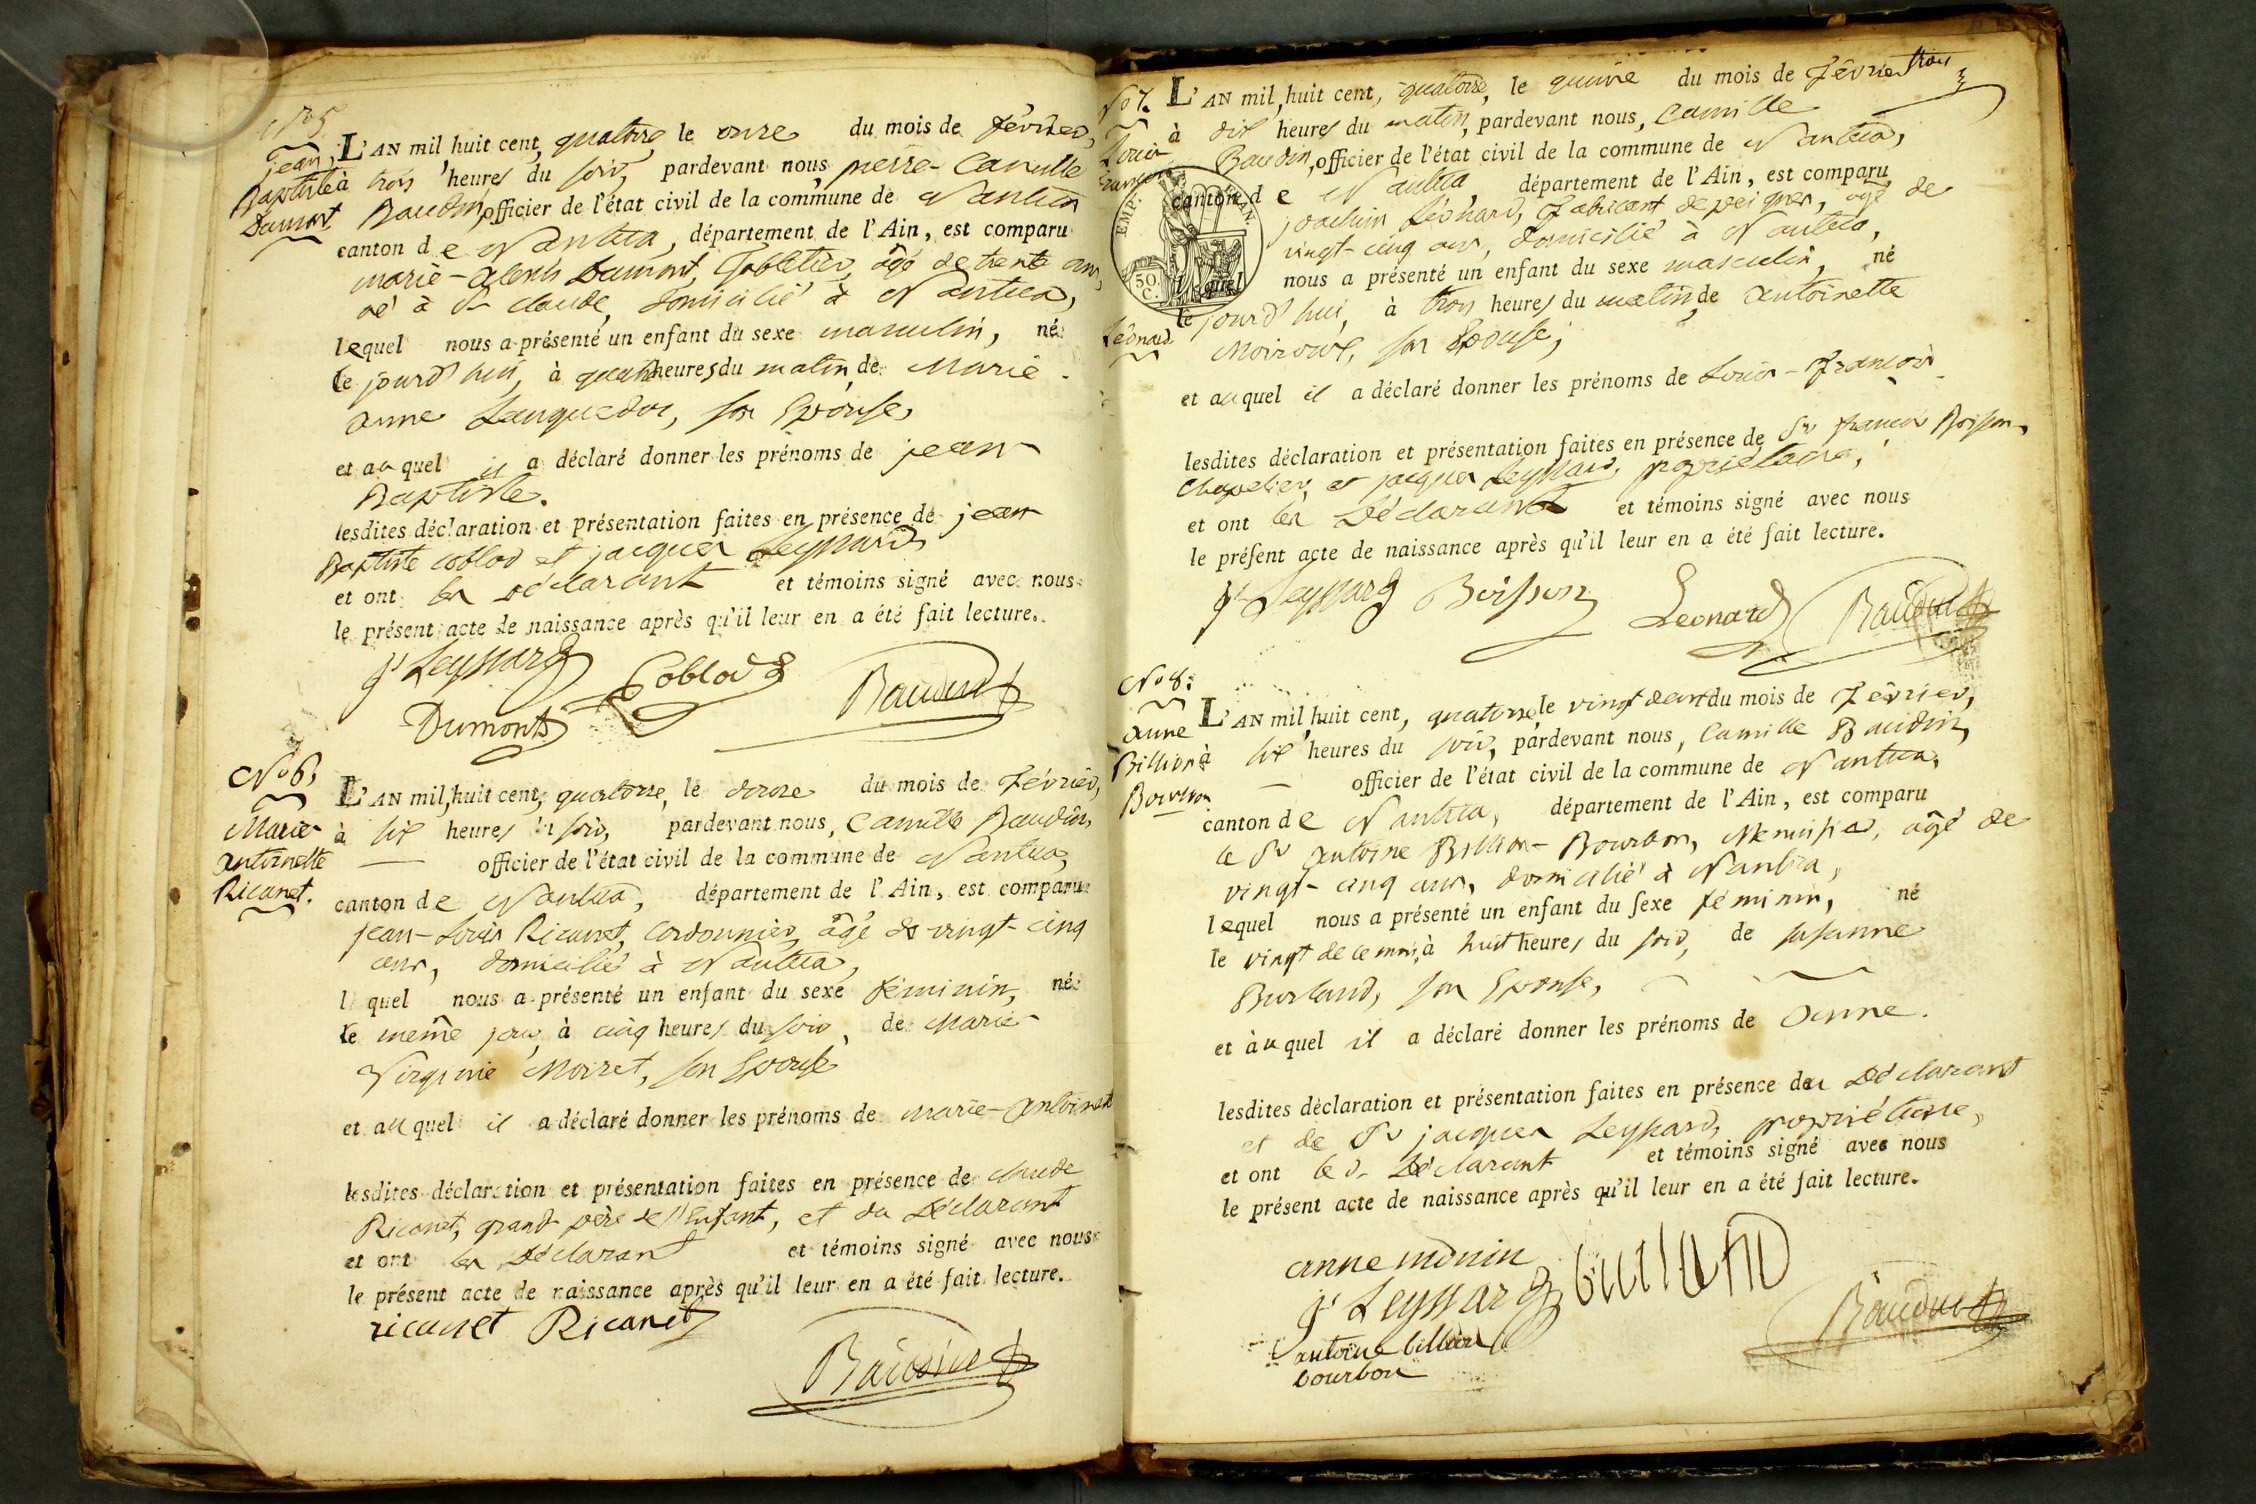 N° 5.
jean
Baptiste
Dumont
L'AN mil huit cent quatorze le onze du mois de février,
à trois heures du soir, pardevant nous pierre-Camille
Baudin, officier de l'état civil de la commune de Nantua
canton de Nantua, département de l'Ain, est comparu
marie-alexis Dumont, Tabletier, âgé de trente ans,
né à St claude, domicilié à Nantua,
lequel nous a présenté un enfant du sexe masculin, né
le jourd'hui, à quatre heures du matin, de Marie
anne Languedoc, son Epouse,
et auquel il a déclaré donner les prénoms de jean
Baptiste.
lesdites déclaration et présentation faites en présence de jean
Baptiste coblod et jacques Leyssard
et ont les déclarant et témoins signé avec nous
le présent acte de naissance après qu'il leur en a été fait lecture.
js Leyssard Coblod Baudin
Dumont
N° 6,
Marie
antoinette
Ricanet.
L'AN mil huit cent, quatorze, le douze du mois de Février,
à six heures du soir, pardevant nous, Camille Baudin,
officier de l'état civil de la commune de Nantua,
canton de Nantua, département de l'Ain, est comparu
jean-Louis Ricanet, Cordonnier, âgé de vingt-cinq
ans, domicilié à Nantua,
lequel nous a présenté un enfant du sexe féminin, né
le même jour, à cinq heures du soir, de Marie
Virginie Moiret, son Epouse
et auquel il a déclaré donner les prénoms de marie-antoinette
lesdites déclaration et présentation faites en présence de claude
Ricanet, grand père de l'Enfant, et du Déclarant
et ont les Déclarant et témoins signé avec nous
le présent acte de naissance après qu'il leur en a été fait lecture.
ricanet Ricanet
Baudin
N° 7.
Louis
françois
Léonard
L'AN mil huit cent, quatorze, le quinze du mois de Février
à dix heures du matin, pardevant nous, Camille
Baudin, officier de l'état civil de la commune de Nantua,
canton de Nantua, département de l'Ain, est comparu
joachim Léonard, fabricant de peignes, âgé de
vingt-cinq ans, domicilié à Nantua,
lequel nous a présenté un enfant du sexe masculin, né
le jourd'hui, à trois heures du matin, de antoinette
son Epouse;
EMP.
50
C.
et auquel il a déclaré donner les prénoms de Louis-François
lesdites déclaration et présentation faites en présence de Sr françois Boisson,
Chapelier, et jacques Leyssard, propriétaire,
et ont les Déclarant et témoins signé avec nous
le présent acte de naissance après qu'il leur en a été fait lecture.
js Leyssard Boisson Leonard Baudin
N° 8:
anne
Billion
Bourbon
L'AN mil huit cent, quatorze, le vingt deux du mois de Février,
à six heures du soir, pardevant nous, Camille Baudin,
officier de l'état civil de la commune de Nantua,
canton de Nantua, département de l'Ain, est comparu
le Sr antoine Billion-Bourbon, Menuisier, âgé de
vingt-cinq ans, domicilié à Nantua,
lequel nous a présenté un enfant du sexe féminin, né
le vingt de ce mois, à huit heures du soir, de susanne
Burland, son Epouse,
et auquel il a déclaré donner les prénoms de Anne.
lesdites déclaration et présentation faites en présence du Déclarant
et de Sr jacques Leyssard, propriétaire,
et ont le d. Déclarant et témoins signé avec nous
le présent acte de naissance après qu'il leur en a été fait lecture.
anne monin
js Leyssard
antoine billion Baudin
bourbon